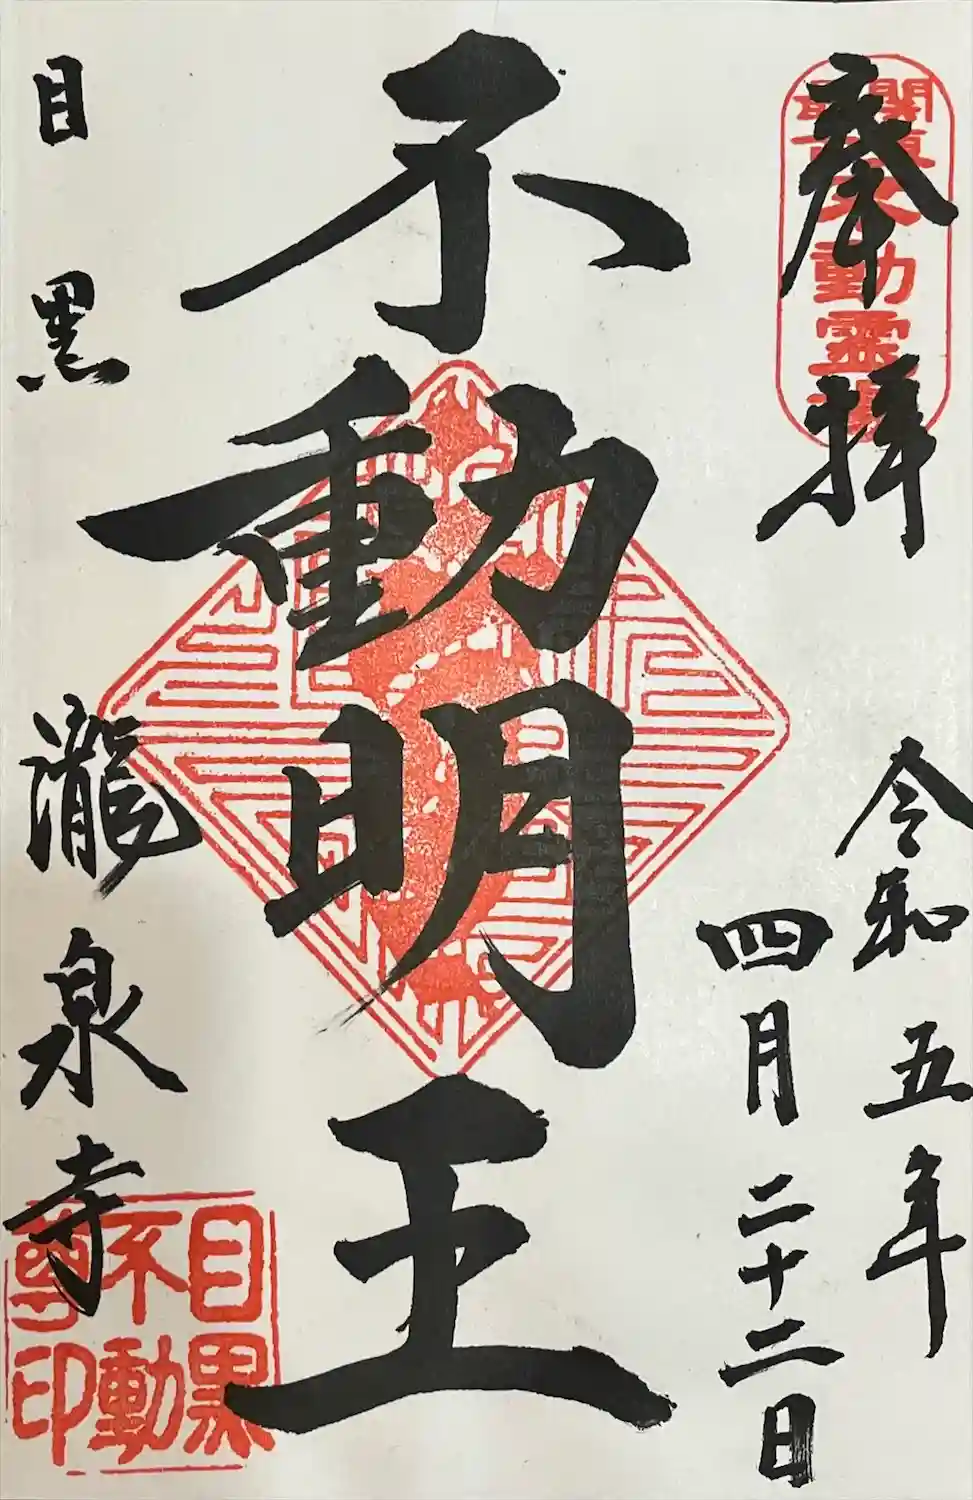 奉拝
令和五年
四月二十二日
不動明王
目黒
瀧泉寺
不動霊場
目黒
不動
尊印